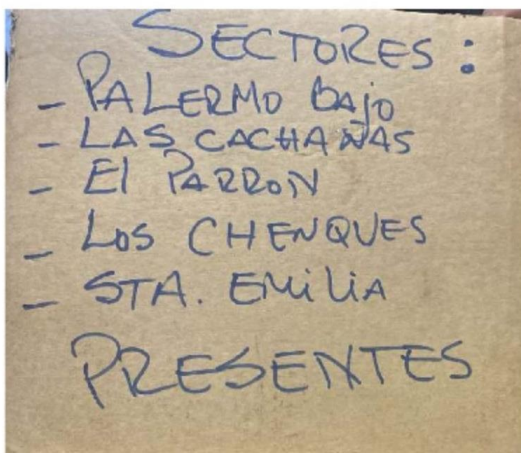 SECTORES:
- PALERMO BAJO
- LAS CACHAÑAS
- El PARRON
- Los CHENQUES
- STA. EMiLiA
PRESENTES